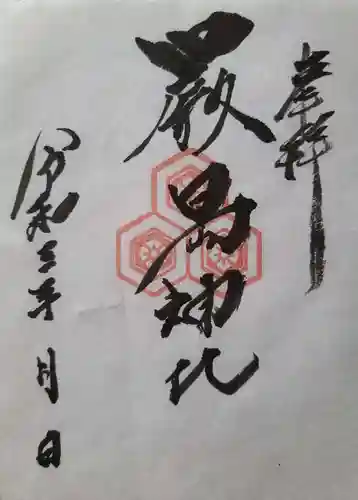 奉拝
厳島神社
令和三年 月 日